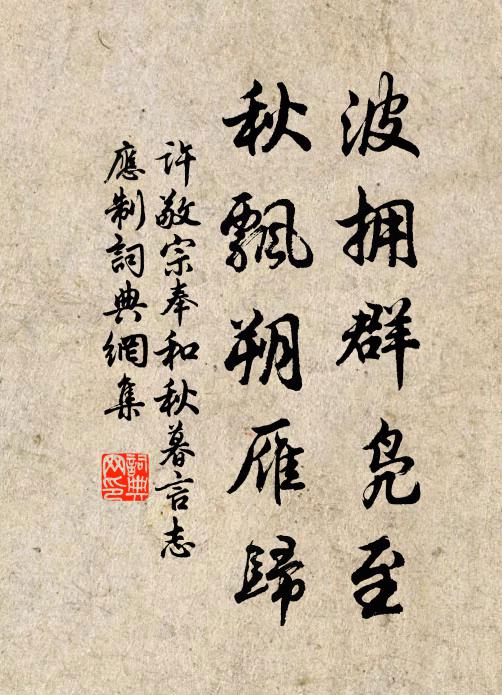 波拥群凫至
秋飘朔雁归
许敬宗奉和秋暮言志
應制詞典網集
詞典網印